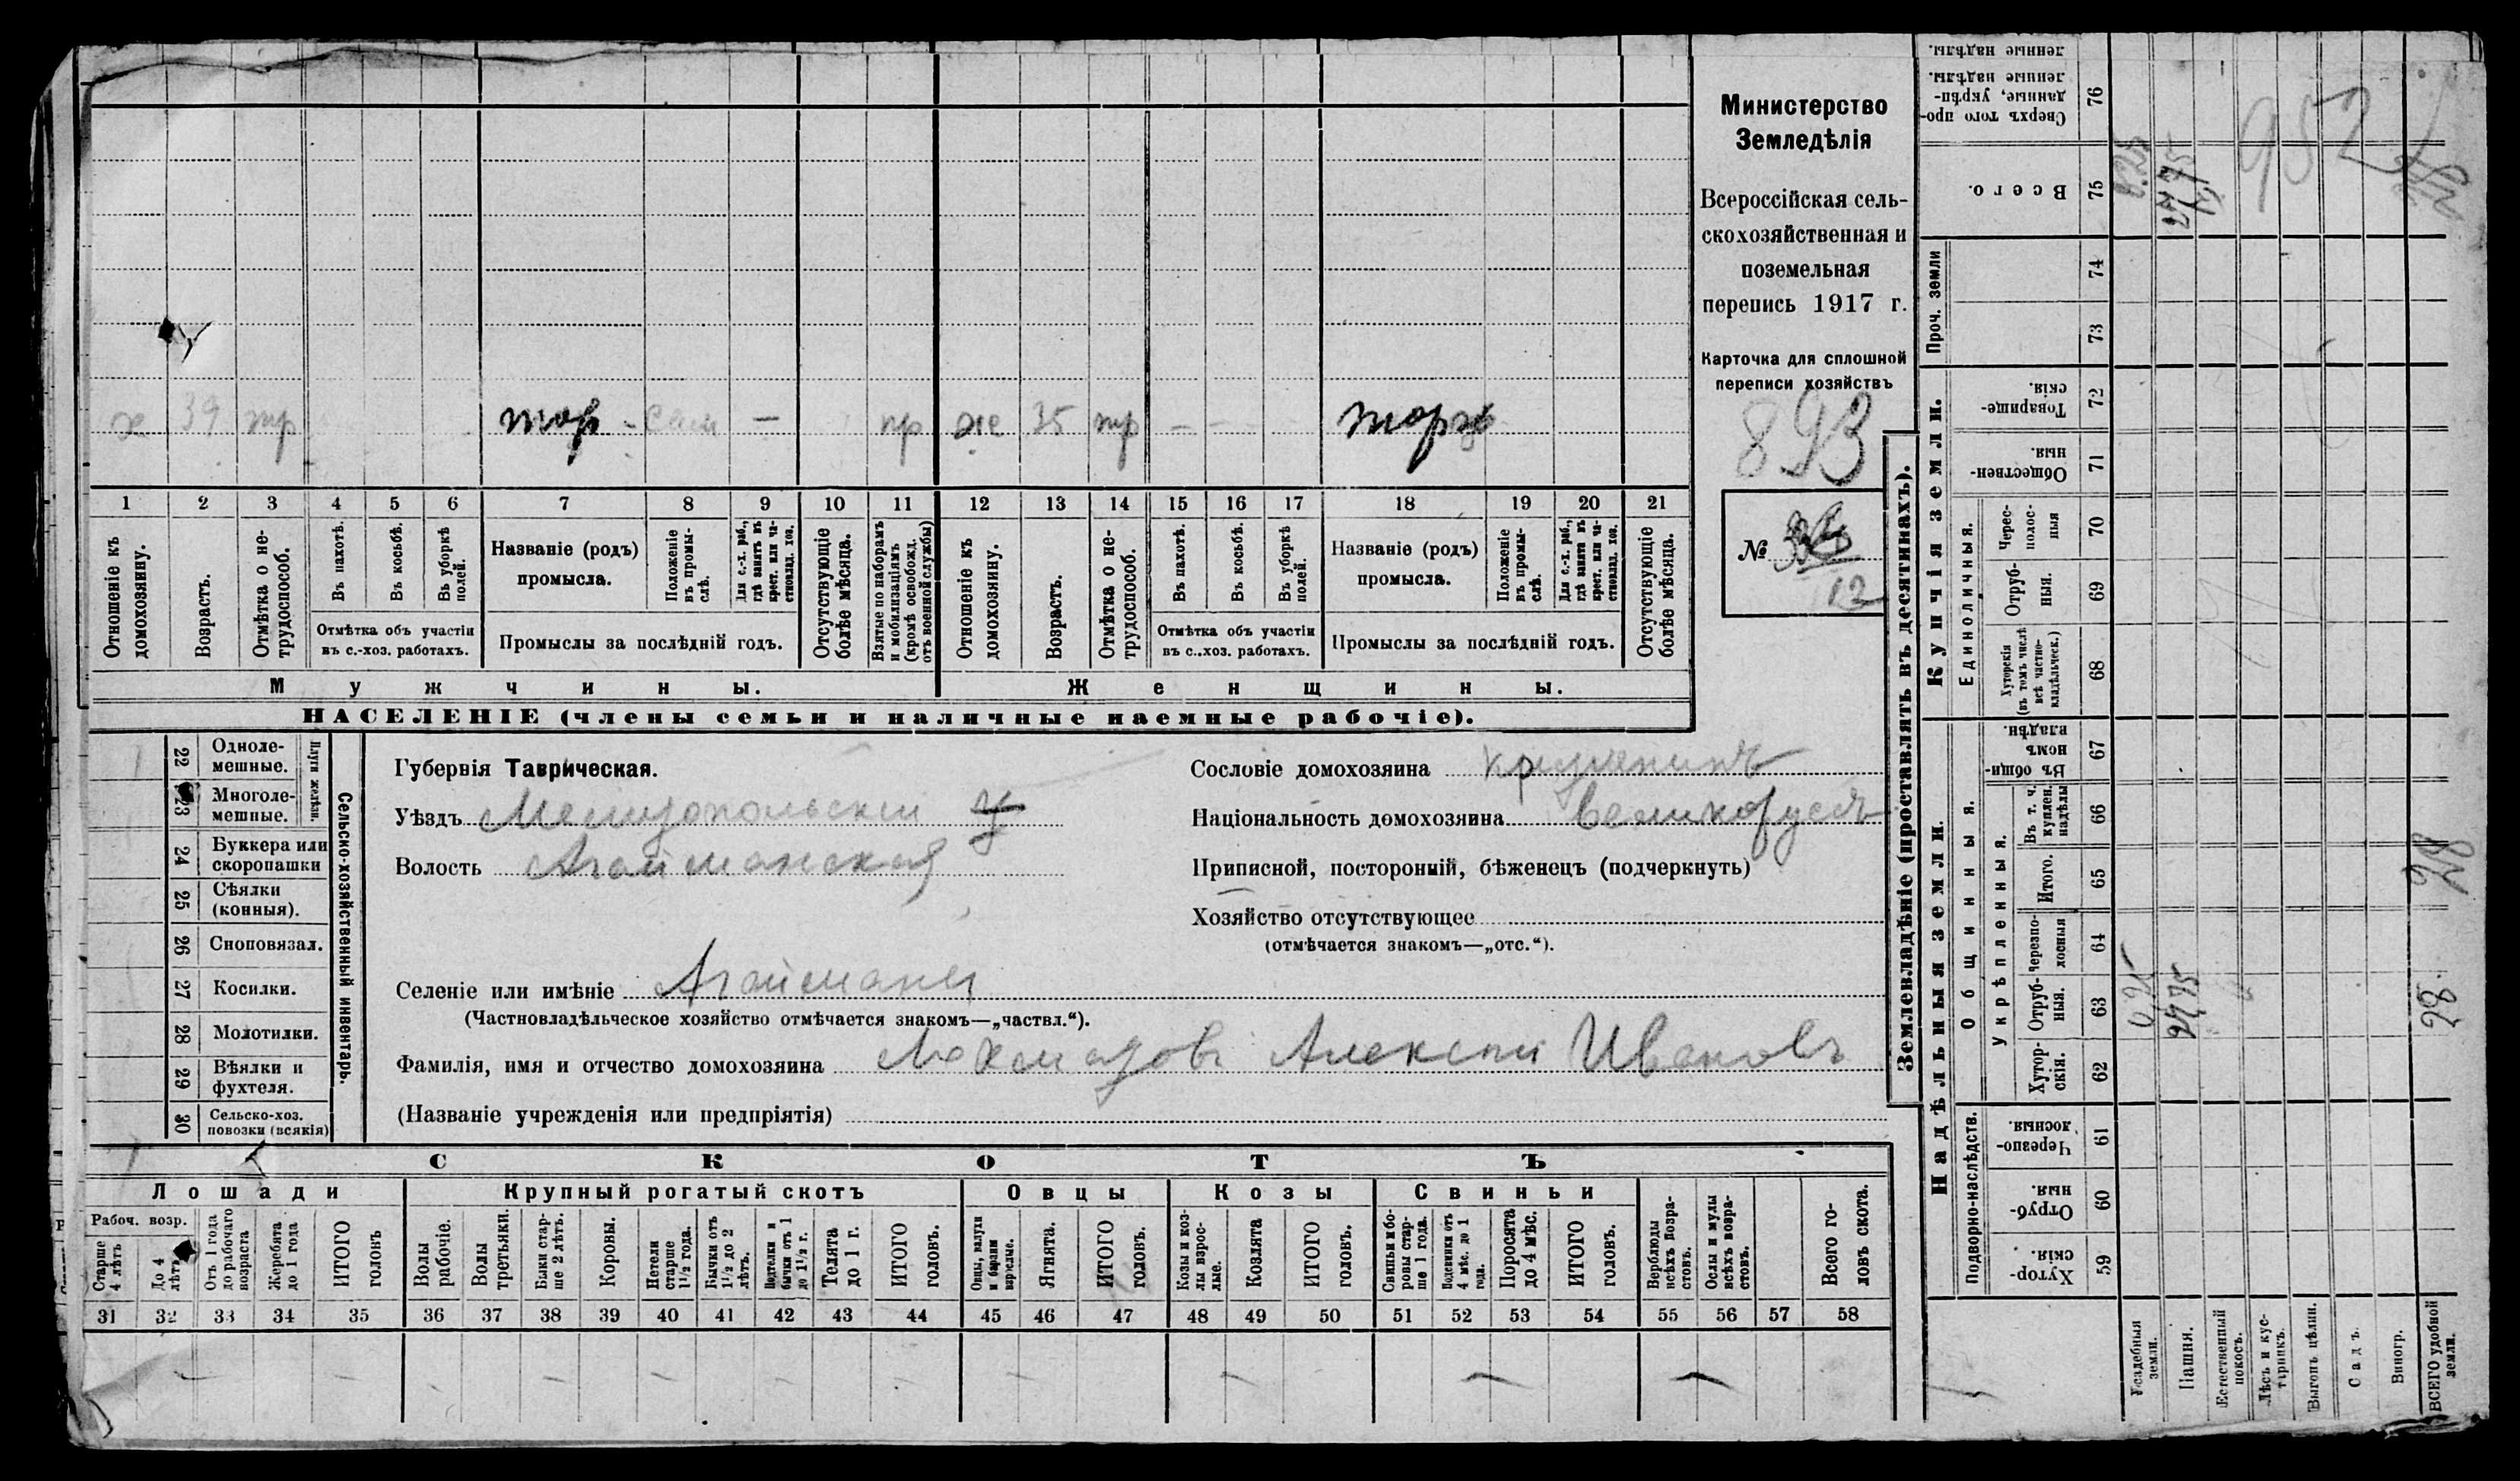 х 39 тр тор - сам — пр же 35 тр — — торг
1 2 3 4 5 6 7 8 9 10 11 12 13 14 15 16 17 18 19 20 21
Отношеніе къ домохозяину.
Возрастъ.
Отмѣтка о не-трудоспособ.
Въ пахотѣ.
Въ косьбѣ.
Въ уборкѣ полей.
Отмѣтка объ участіи
въ с.-хоз. работахъ.
Названіе (родъ)
промысла.
Положеніе въ промы-слѣ.
Для с.-х. раб., гдѣ занятъ въ крест. или ча-стновлад. хоз.
Промыслы за послѣдній годъ.
Отсутствующіе болѣе мѣсяца.
Взятые по наборамъ и мобилизаціямъ (кромѣ освобожд. отъ военной службы)
Отношеніе къ домохозяину.
Возрастъ.
Отмѣтка о не-трудоспособ.
Въ пахотѣ.
Въ косьбѣ.
Въ уборкѣ полей.
Отмѣтка объ участіи
въ с..хоз. работахъ.
Названіе (родъ)
промысла.
Положеніе въ промы-слѣ.
Для с.-х. раб., гдѣ занята въ крест. или ча-стновлад. хоз.
Промыслы за послѣдній годъ.
Отсутствующіе болѣе мѣсяца.
Мужчины.
Женщины.
НАСЕЛЕНІЕ (члены семьи и наличные наемные рабочіе).
Министерство
Земледѣлія
Всероссійская сель-
скохозяйственная и
поземельная
перепись 1917 г.
Карточка для сплошной
переписи хозяйствъ
893
№
12
22 Одноле-мешные.
23 Многоле-мешные.
Плуги желѣзн.
24 Буккера или скоропашки
25 Сѣялки (конныя).
26 Сноповязал.
27 Косилки.
28 Молотилки.
29 Вѣялки и фухтеля.
30 Сельско-хоз. повозки (всякія)
Сельско-хозяйственный инвентарь.
Губернія Таврическая.
Уѣздъ Мелитопольскій
Волость Агайманская
Селеніе или имѣніе Агайманы
(Частновладѣльческое хозяйство отмѣчается знакомъ—„частвл.“).
Фамилія, имя и отчество домохозяина Алексѣй Ивановъ
(Названіе учрежденія или предпріятія)
Сословіе домохозяина крестьянинъ
Національность домохозяина великоруссъ
Приписной, посторонній, бѣженецъ (подчеркнуть)
Хозяйство отсутствующее
(отмѣчается знакомъ—„отс.“).
СКОТЪ
Лошади
Крупный рогатый скотъ
Овцы
Козы
Свиньи
Рабоч. возр.
Старше 4 лѣтъ
До 4 лѣтъ
Отъ 1 года до рабочаго возраста
Жеребята до 1 года
ИТОГО головъ
Волы рабочіе.
Волы третьяки.
Быки стар-ше 2 лѣтъ.
Коровы.
Нетели старше 1½ года.
Бычки отъ 1½ до 2 лѣтъ.
бычки отъ 1 до 1½ г.
Телята до 1 г.
ИТОГО головъ.
Овцы, валухи и бараны взрослые.
Ягнята.
ИТОГО головъ.
Козы и коз-лы взрос-лые.
Козлята
ИТОГО головъ.
Свиньи и бо-ровы стар-ше 1 года.
Подсвинки отъ 4 мѣс. до 1 года.
Поросята до 4 мѣс.
ИТОГО головъ.
Верблюды всѣхъ возра-стовъ.
Ослы и мулы всѣхъ возра-стовъ.
Всего го-ловъ скота.
31 32 33 34 35 36 37 38 39 40 41 42 43 44 45 46 47 48 49 50 51 52 53 54 55 56 57 58
Землевладѣніе (проставлять въ десятинахъ).
Купчія земли.
Надѣльныя земли.
Проч. земли
Единоличныя.
Общинныя.
Укрѣпленныя.
Подворно-наслѣдств.
Сверхъ того про-данные, укрѣп-ленные надѣлы. 76
Всего. 75
74
73
Товарище-скія. 72
Обществен-ныя. 71
Черес-полос-ныя 70
Отруб-ныя. 69
Хуторскія (въ томъ числѣ всѣ частно-владѣльческ.) 68
Въ общин-номъ владѣн. 67
Въ т. ч. куплен. надѣлы 66
Итого. 65
Черезпо-лосныя 64
Отруб-ныя. 63
Хутор-скія. 62
Черезпо-лосныя. 61
Отруб-ныя. 60
Хутор-скія. 59
Усадебныя земли.
Пашня.
Естественный покосъ.
Лѣсъ и кус-тарникъ.
Выгонъ цѣлин.
Садъ.
Виногр.
ВСЕГО удобной земли.
0,25
27,75
952
28
28